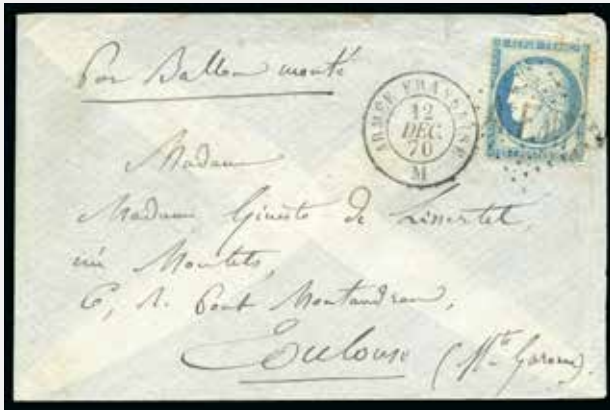 Par Ballon monté
ARMÉE FRANÇAISE
12
DEC.
70
M
Madame
Madame Ginesto de
née
6, r. Pont Montaudran,
Toulouse (Hte Garonne).